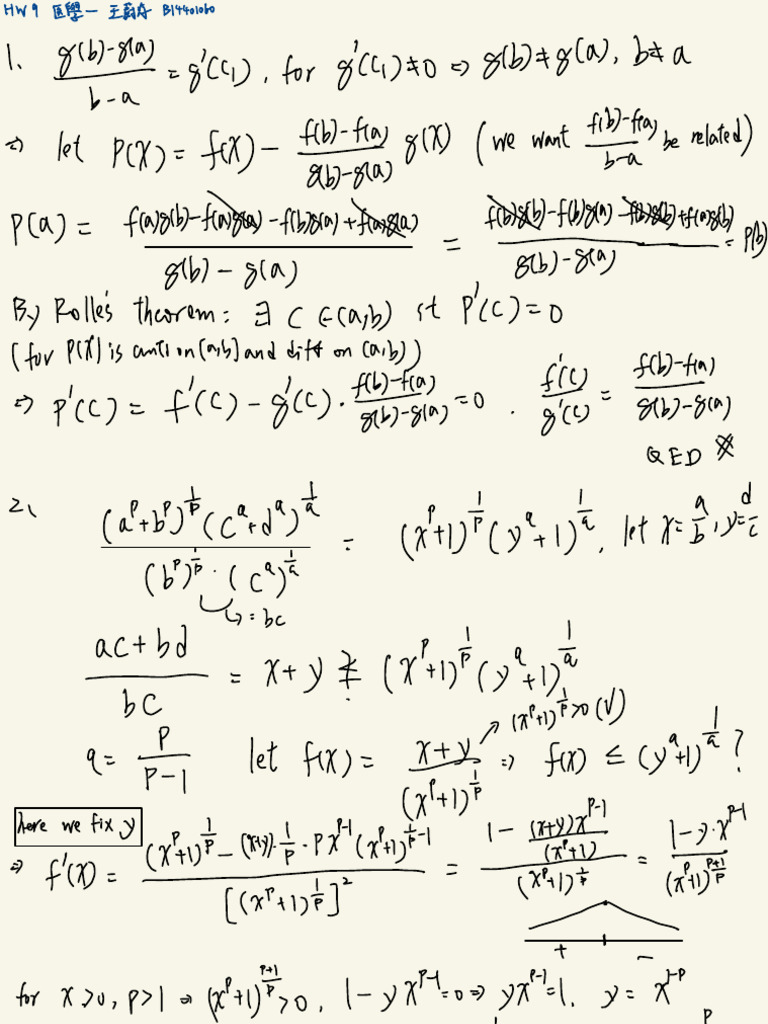 HW9 醫學一 王蔚存 B14401060
1. (g(b)-g(a))/(b-a) = g'(c₁), for g'(c₁)≠0 ⇒ g(b)≠g(a), b≠a
⇒ let P(X) = f(X) - (f(b)-f(a))/(g(b)-g(a)) g(X) (we want (f(b)-f(a))/(b-a) be related)
P(a) = (f(a)g(b)-f(a)g(a)-f(b)g(a)+f(a)g(a))/(g(b)-g(a)) = (f(b)g(b)-f(b)g(a)-f(b)g(b)+f(a)g(b))/(g(b)-g(a)) = P(b)
By Rolle's theorem: ∃ c ∈ (a,b) st P'(c)=0
(for P(X) is conti on [a,b] and diff on (a,b))
⇒ P'(c) = f'(c) - g'(c)·(f(b)-f(a))/(g(b)-g(a)) = 0. f'(c)/g'(c) = (f(b)-f(a))/(g(b)-g(a))
QED ※
2、 ((a^p+b^p)^(1/p) (c^q+d^q)^(1/q))/((b^p)^(1/p)·(c^q)^(1/q)) = (x^p+1)^(1/p) (y^q+1)^(1/q), let x=a/b, y=d/c
↳ = bc
(ac+bd)/(bc) = x+y ≤? (x^p+1)^(1/p) (y^q+1)^(1/q)
↗ (x^p+1)^(1/p)>0 (√)
q = p/(p-1) let f(x) = (x+y)/(x^p+1)^(1/p) ⇒ f(x) ≤ (y^q+1)^(1/q) ?
here we fix y
⇒ f'(x) = ((x^p+1)^(1/p) - (x+y)·(1/p)·p x^(p-1) (x^p+1)^(1/p-1))/[(x^p+1)^(1/p)]² = (1 - ((x+y)x^(p-1))/(x^p+1))/(x^p+1)^(1/p) = (1-y·x^(p-1))/(x^p+1)^((p+1)/p)
+ -
for x>0, p>1 ⇒ (x^p+1)^((p+1)/p) >0, 1-y x^(p-1)=0 ⇒ yx^(p-1)=1. y = x^(1-p)